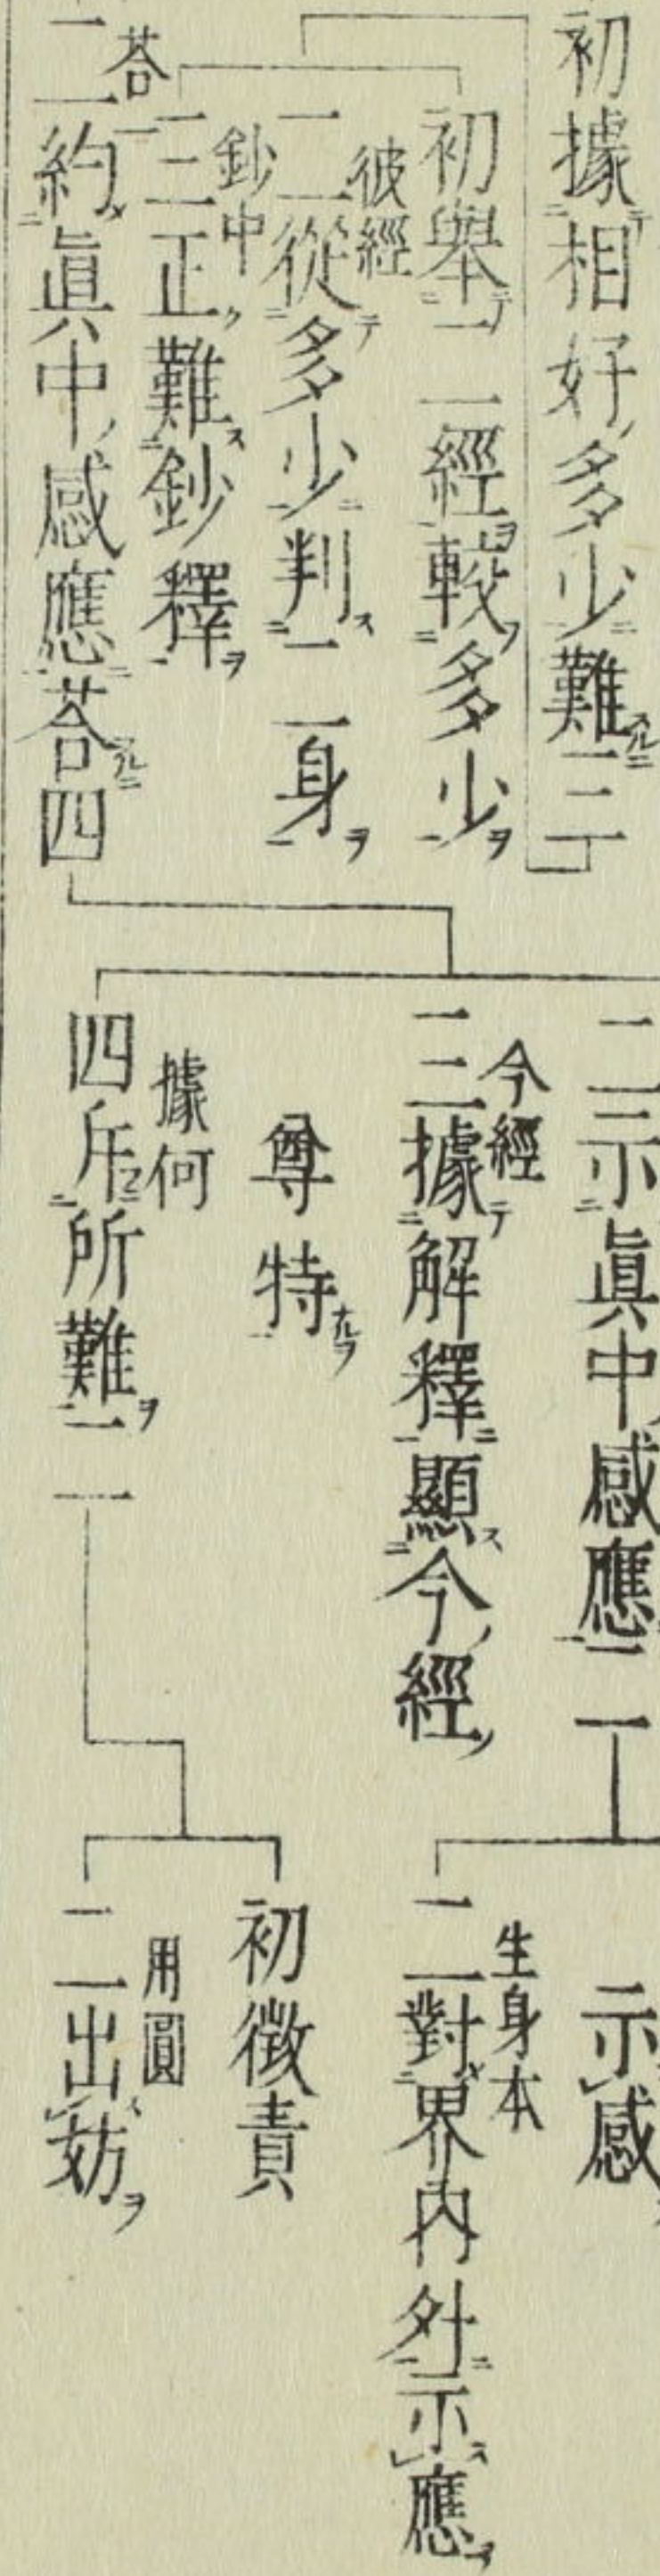 初據相好多少難三
初舉二經較多少
彼經
二從多少判二身
鈔中
三正難鈔釋
答
二約眞中感應答四
二示眞中感應二
今經
三據解釋顯今經
尊特
據何
四斥所難二
示感
生身本
二對界内外示應
初徴責
用圓
二出妨